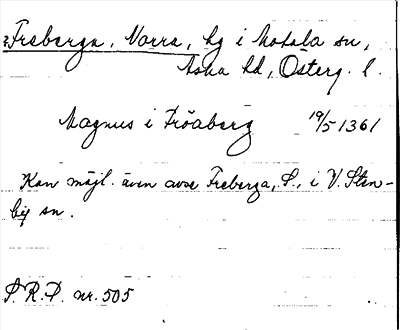 ?Freberga, Norra, by i Motala sn,
Aska hd, Österg. l.
Magnus i Fröaberg 19/5 1361
Kan möjl. även avse Freberga, S., i V. Sten-
by sn.
S.R.P. nr. 505